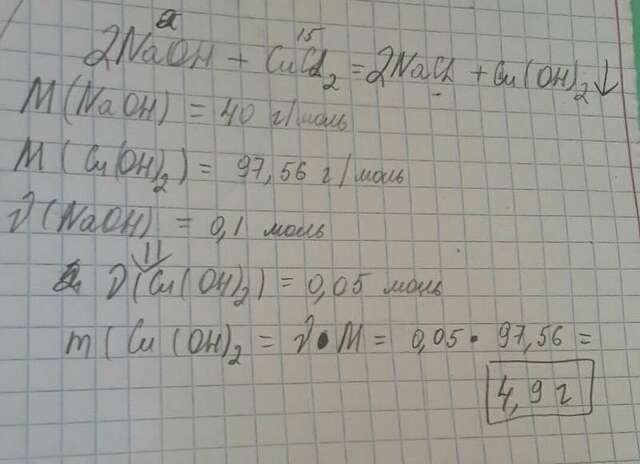 2NaOH + CuCl₂ = 2NaCl + Cu(OH)₂↓
M(NaOH) = 40 г/моль
M(Cu(OH)₂) = 97,56 г/моль
ν(NaOH) = 0,1 моль
ν(Cu(OH)₂) = 0,05 моль
m(Cu(OH)₂ = ν•M = 0,05 • 97,56 =
4,9 г